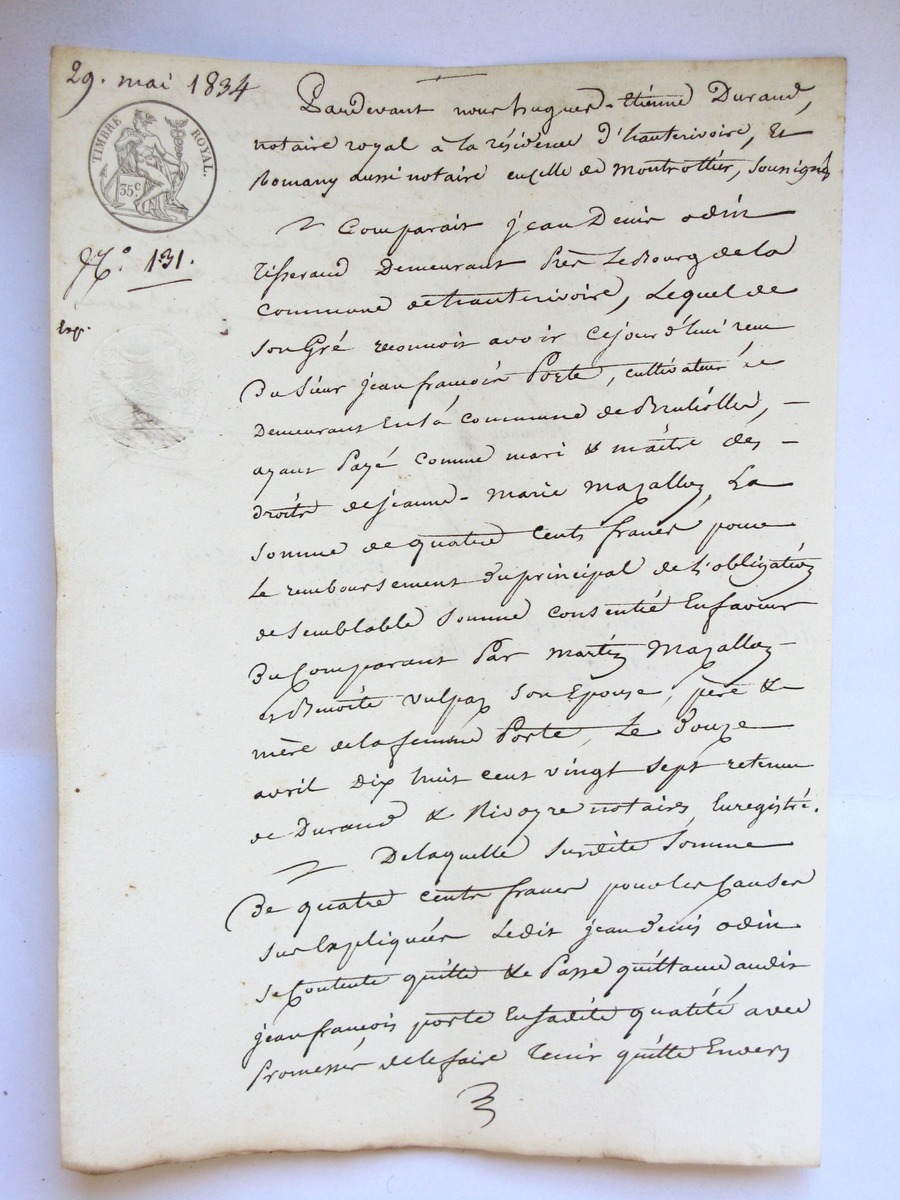 29. mai 1834
TIMBRE ROYAL.
35.c
N.o 131.
Exp.
Pardevant nous hugues-étienne Durand,
notaire royal à la résidence d'hauterivoire, Et
Romany aussi notaire encelle de Montrottier, soussignés
Comparait jean Denis odin
tisserand Demeurant Près Le Bourg de la
commune de hauterivoire, Lequel de
son Gré reconnoit avoir cejourd'hui reçu
Du sieur jean françois Porte, cultivateur
Demeurant En la commune de Brullioles, -
ayant Payé comme mari & maître des -
droits de jeanne-Marie Mazallon, La
somme de quatre cents francs pour
Le remboursement du principal de L'obligation
de semblable somme consentie En faveur
Du Comparant Par martin Mazallon
et Benoite vulpaz son Epouse, père &
mère de la femme Porte, Le Douze
avril Dix huit cent vingt sept retenue
de Durand & Rivoyre notaires Enregistré.
De laquelle susdite somme
De quatre cents francs pour les Causes
sus Expliquées Ledit jean denis odin
se Contente quitte & Passe quittance audit
jean françois porte En sadite qualité, avec
Promesses de le faire tenir quitte Envers
3